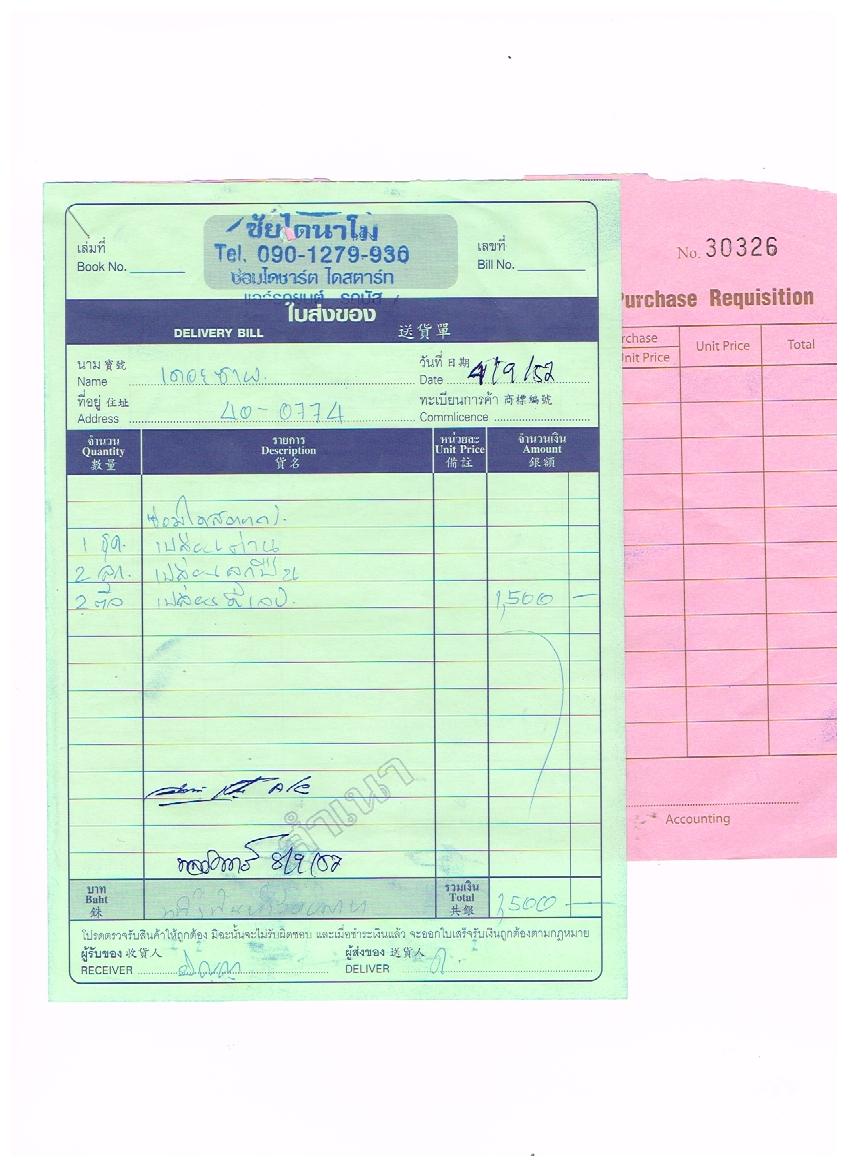 ชัยไดนาโม
Tel. 090-1279-936
ซ่อมไดชาร์ต ไดสตาร์ท
แอร์รถยนต์ รถบัส
เล่มที่
Book No.
เลขที่
Bill No.
ใบส่งของ
DELIVERY BILL 送貨單
นาม 寶號
Name
วันที่ 日期
Date 4/9/52
ที่อยู่ 住址
Address 40-0774
ทะเบียนการค้า 商標編號
Commlicence
จำนวน
Quantity
數量
รายการ
Description
貨名
หน่วยละ
Unit Price
備註
จำนวนเงิน
Amount
銀額
1 ชุด. เปลี่ยนถ่าน
2 ลูก. เปลี่ยนลูกปืน
2 1,500 –
สำเนา
8/9/52
บาท
Baht
銖
รวมเงิน
Total
共銀
1,500 –
โปรดตรวจรับสินค้าให้ถูกต้อง มิฉะนั้นจะไม่รับผิดชอบ และเมื่อชำระเงินแล้ว จะออกใบเสร็จรับเงินถูกต้องตามกฎหมาย
ผู้รับของ 收貨人
RECEIVER
ผู้ส่งของ 送貨人
DELIVER
No. 30326
Purchase Requisition
rchase
Unit Price
Unit Price
Total
Accounting